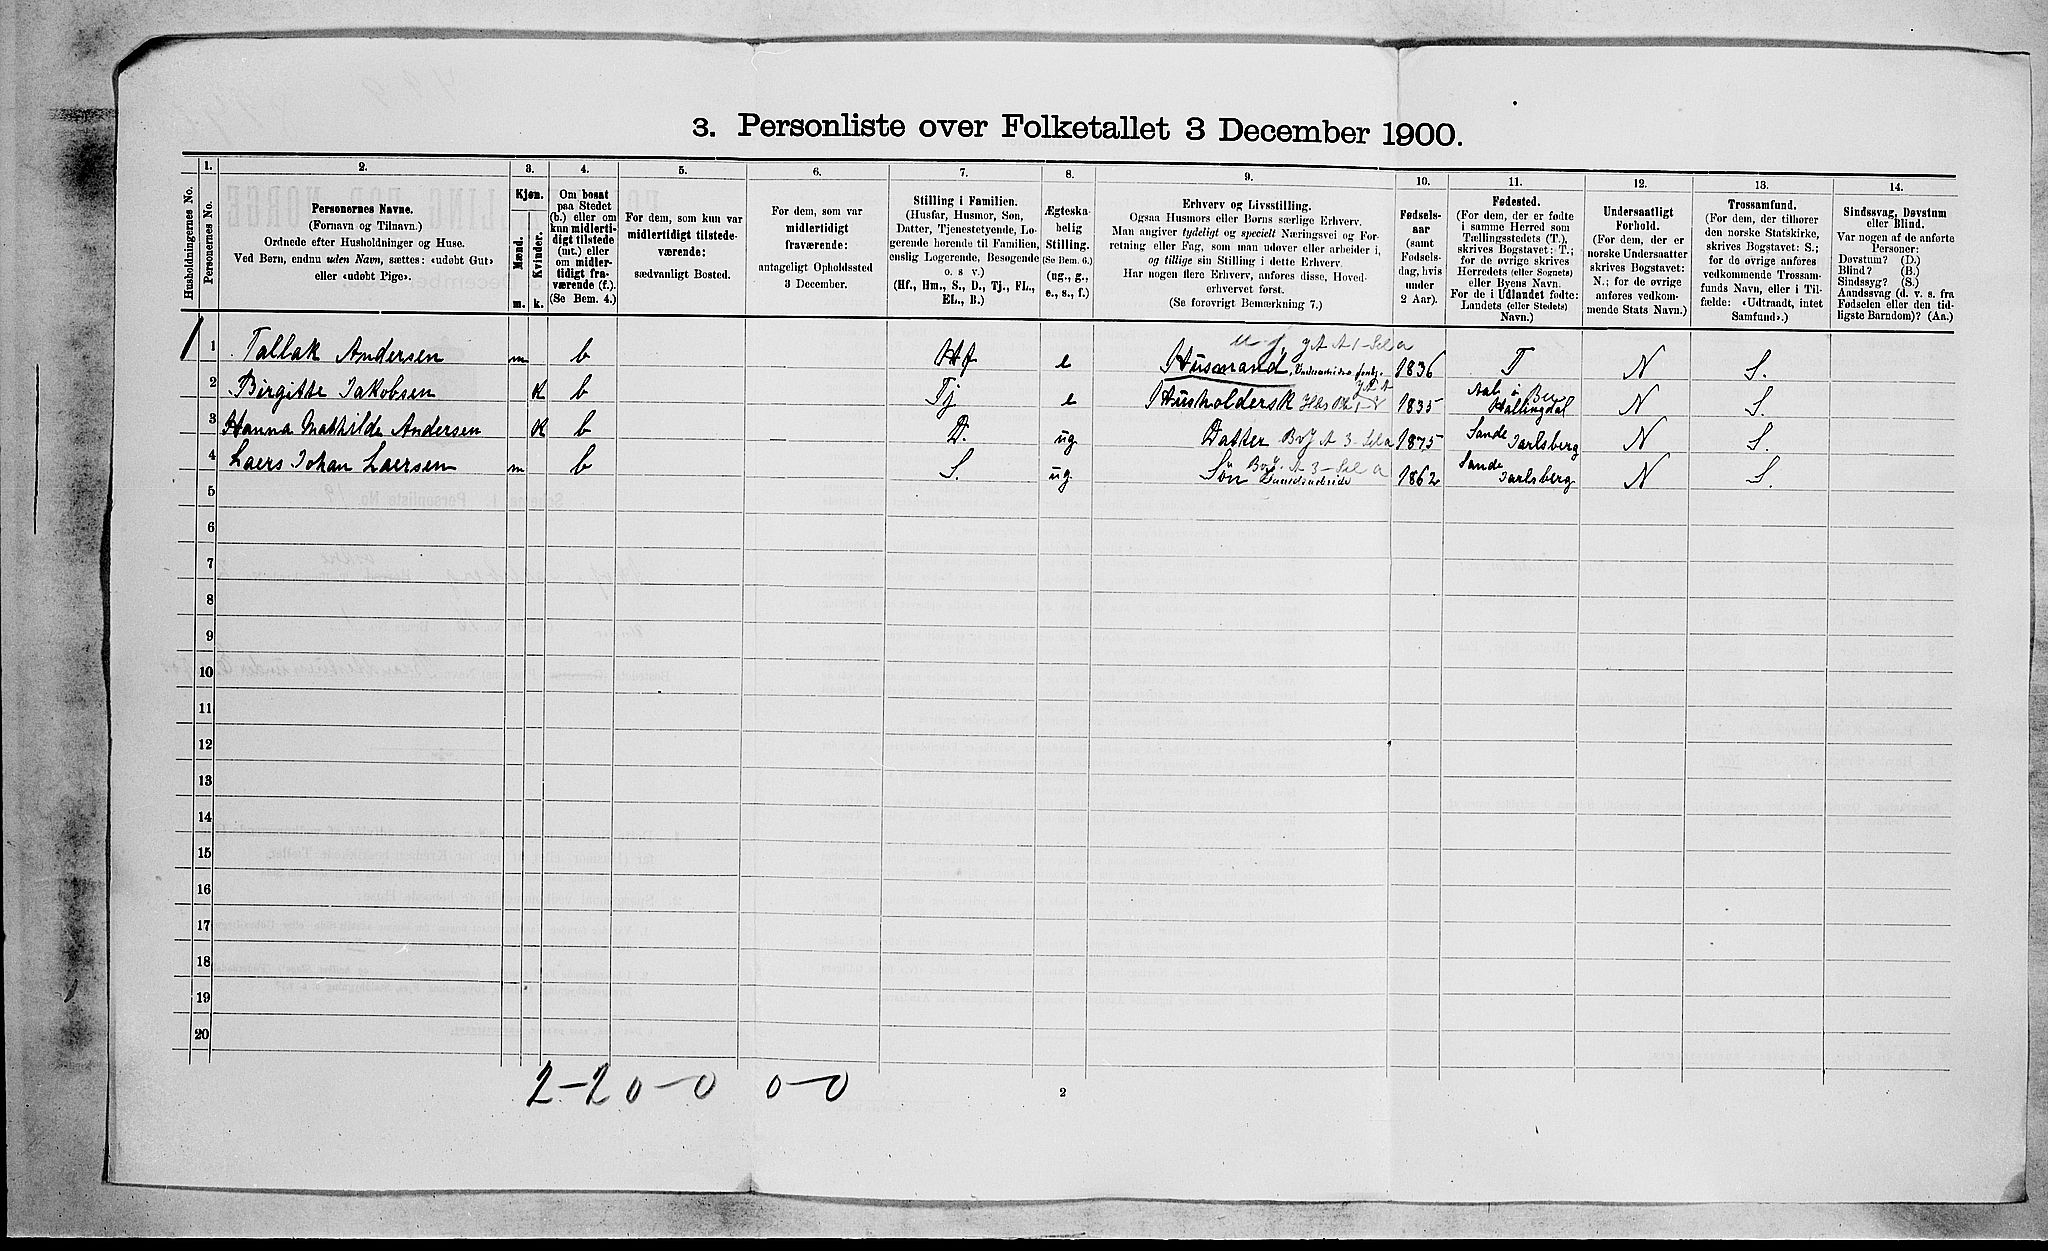 3. Personliste over Folketallet 3 December 1900.
Husholdningernes No.
1.
Personernes No.
2.
Personernes Navne.
(Fornavn og Tilnavn.)
Ordnede efter Husholdninger og Huse.
Ved Børn, endnu uden Navn, sættes: «udøbt Gut»
eller «udøbt Pige».
3.
Kjøn.
Mænd.
Kvinder.
m.
k.
4.
Om bosat
paa Stedet
(b.) eller om
kun midlerti-
digt tilstede
(mt.) eller
om midler-
tidigt fra-
værende (f.).
(Se Bem. 4.)
5.
For dem, som kun var
midlertidigt tilstede-
værende:
sædvanligt Bosted.
6.
For dem, som var
midlertidigt
fraværende:
antageligt Opholdssted
3 December.
7.
Stilling i Familien.
(Husfar, Husmor, Søn,
Datter, Tjenestetyende, Lo-
gerende hørende til Familien,
enslig Logerende, Besøgende
o. s v.)
(Hf., Hm., S., D., Tj., FL.,
EL., B.)
8.
Ægteska-
belig
Stilling.
(Se Bem. 6.)
(ug., g.,
e., s., f.)
9.
Erhverv og Livsstilling.
Ogsaa Husmors eller Børns særlige Erhverv.
Man angiver tydeligt og specielt Næringsvei og For-
retning eller Fag, som man udøver eller arbeider i,
og tillige sin Stilling i dette Erhverv.
Har nogen flere Erhverv, anføres disse, Hoved-
erhvervet først.
(Se forøvrigt Bemærkning 7.)
10.
Fødsels-
aar
(samt
Fødsels-
dag, hvis
under
2 Aar).
11.
Fødested.
(For dem, der er fødte
i samme Herred som
Tællingsstedets (T.),
skrives Bogstavet: T.;
for de øvrige skrives
Herredets (eller Sognets)
eller Byens Navn.
For de i Udlandet fødte:
Landets (eller Stedets)
Navn.)
12.
Undersaatligt
Forhold.
(For dem, der er
norske Undersaatter
skrives Bogstavet:
N.; for de øvrige
anføres vedkom-
mende Stats Navn.)
13.
Trossamfund.
(For dem, der tilhører
den norske Statskirke,
skrives Bogstavet: S.;
for de øvrige anføres
vedkommende Trossam-
funds Navn, eller i Til-
fælde: «Udtraadt, intet
Samfund».)
14.
Sindssvag, Døvstum
eller Blind.
Var nogen af de anførte
Personer:
Døvstum? (D.)
Blind? (B.)
Sindssyg? (S.)
Aandssvag (d. v. s. fra
Fødselen eller den tid-
ligste Barndom)? (Aa.)
1 1 Tallak Andersen m b Hf e Husmand 1836 T N S.
2 Birgitte Jakobsen K b Tj e Husholdersk 1835 Hallingdal N S.
3 Hanna Mathilde Andersen K b D. ug Datter 1875 Sande Jarlsberg N S.
4 Laers Johan Laersen m b S. ug. Søn 1862 Sande Jarlsberg N S.
5
6
7
8
9
10
11
12
13
14
15
16
17
18
19
20
2-2 0-0 0-0
2